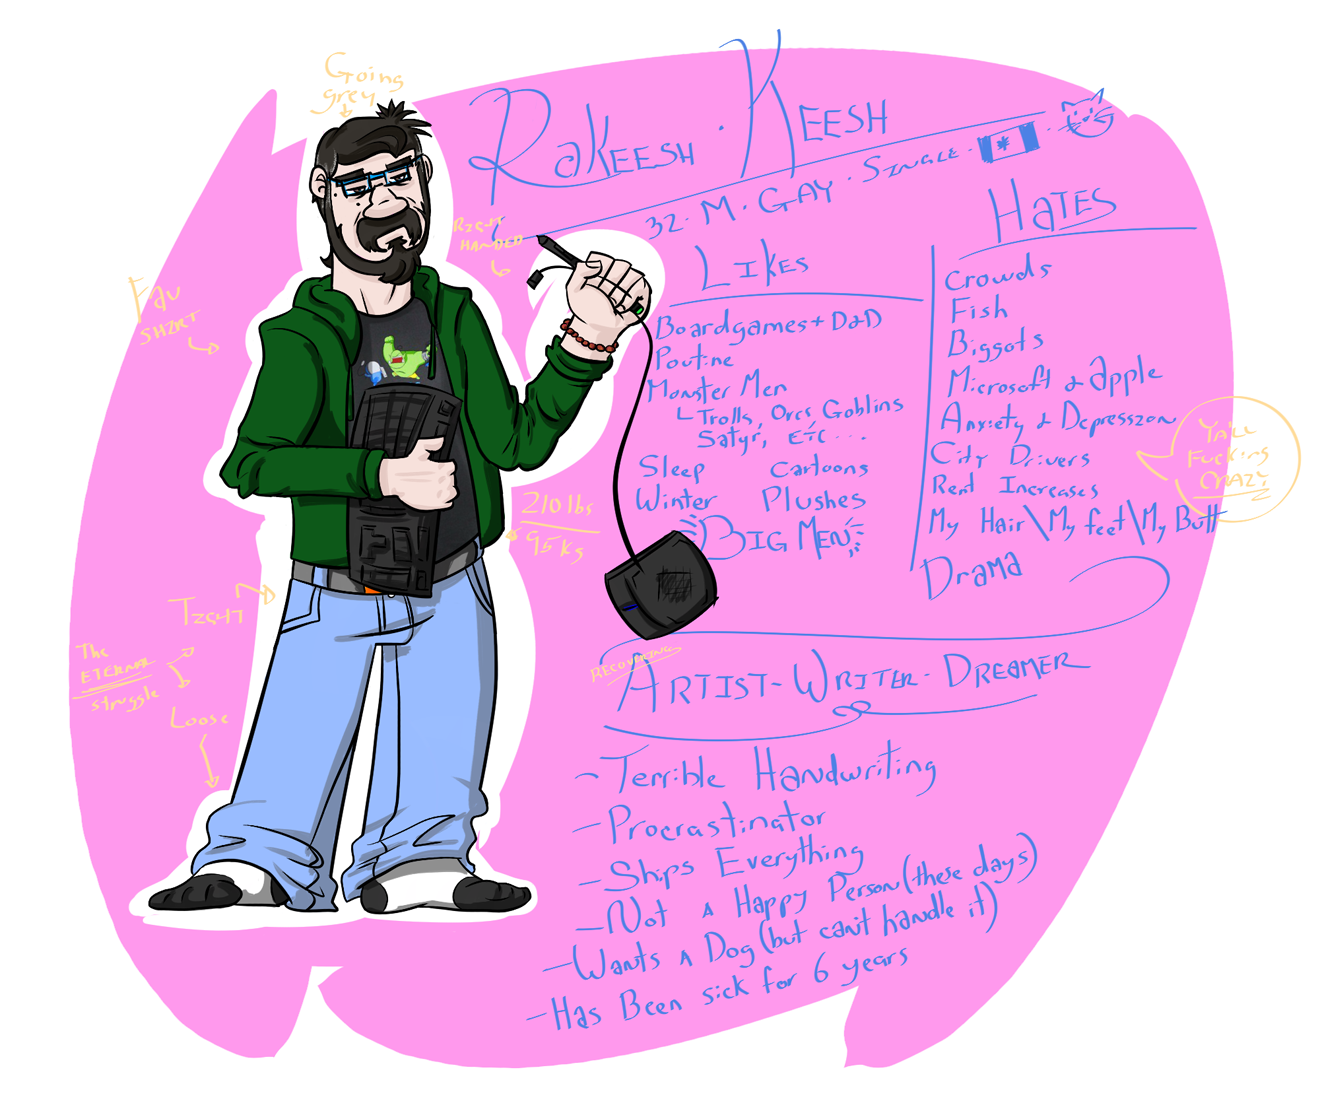 Going
grey
Rakeesh . Keesh
32 · M · Gay · Single ·
Right
Handed
Fav
Shirt
Likes
Boardgames + D&D
Poutine
Monster Men
Trolls, Orcs, Goblins
Satyr, etc...
Sleep Cartoons
Winter Plushes
Big Men
Hates
Crowds
Fish
Biggots
Microsoft & Apple
Anxiety & Depression
City Drivers
Rent Increases
My Hair\My feet\My Butt
Drama
Ya'll
Fucking
Crazy
210 lbs
95 kg
Tight
The
Eternal
struggle
Loose
Recovering
Artist - Writer - Dreamer
- Terrible Handwriting
- Procrastinator
- Ships Everything
- Not A Happy Person (these days)
- Wants A Dog (but can't handle it)
- Has Been sick for 6 years